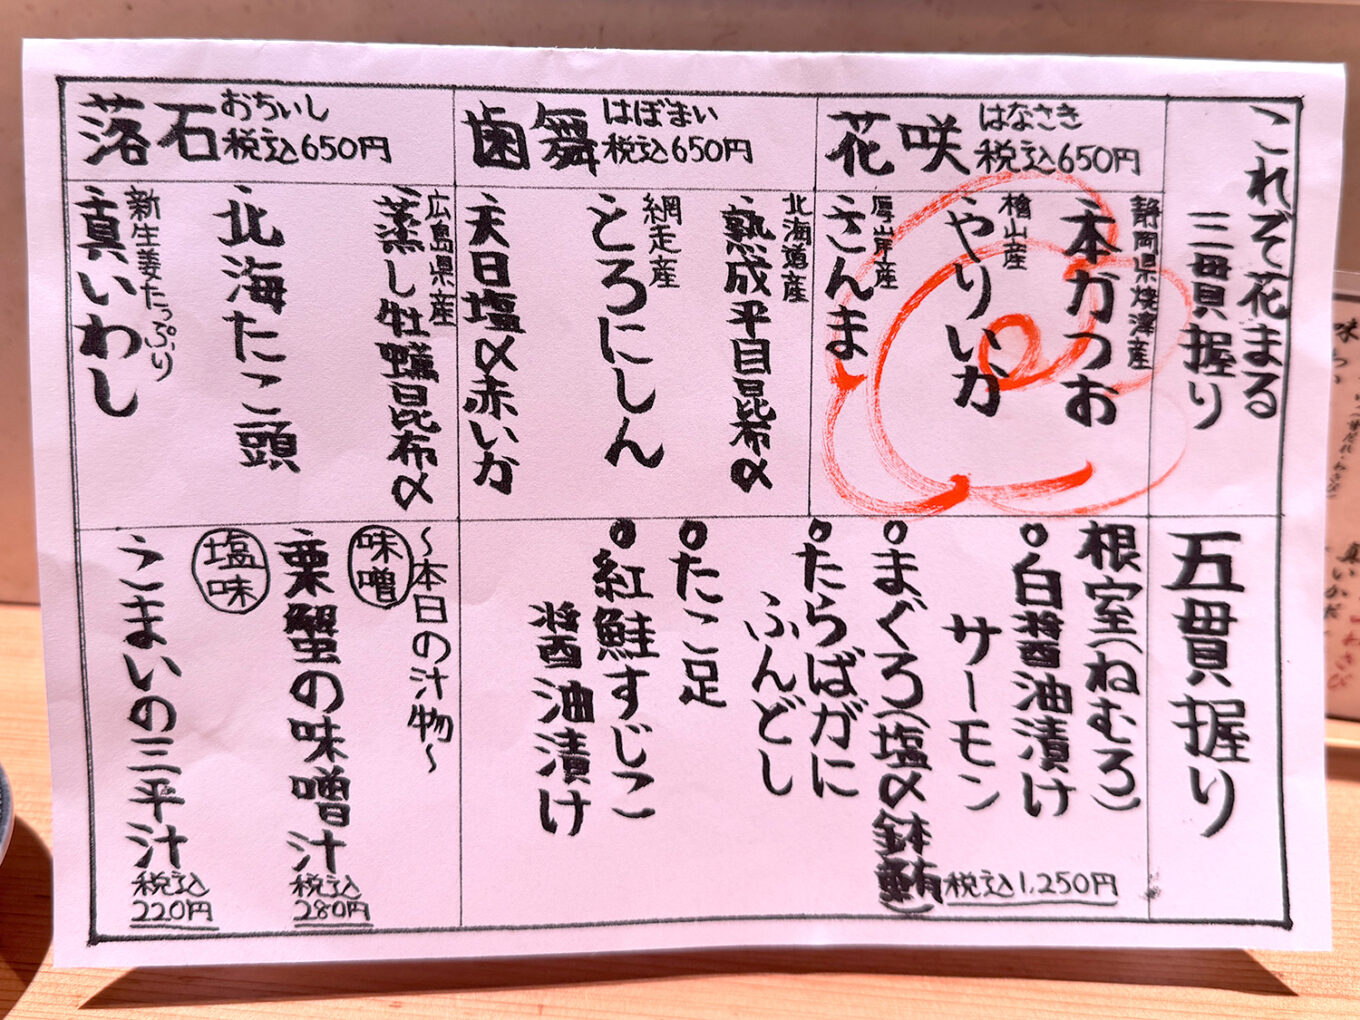 これぞ花まる
三貫握り
花咲
はなさき
税込650円
静岡県焼津産
本がつお
檜山産
やりいか
厚岸産
さんま
歯舞
はぼまい
税込650円
北海道産
熟成平目昆布〆
網走産
とろにしん
天日塩〆赤いか
落石
おちいし
税込650円
広島県産
蒸し牡蠣昆布〆
北海たこ頭
新生姜たっぷり
真いわし
五貫握り
根室(ねむろ)
○白醤油漬け
サーモン
○まぐろ(塩〆鉢鮪)
○たらばがに
ふんどし
○たこ足
○紅鮭すじこ
醤油漬け
税込1,250円
～本日の汁物～
味噌
栗蟹の味噌汁
税込
280円
塩味
こまいの三平汁
税込
220円